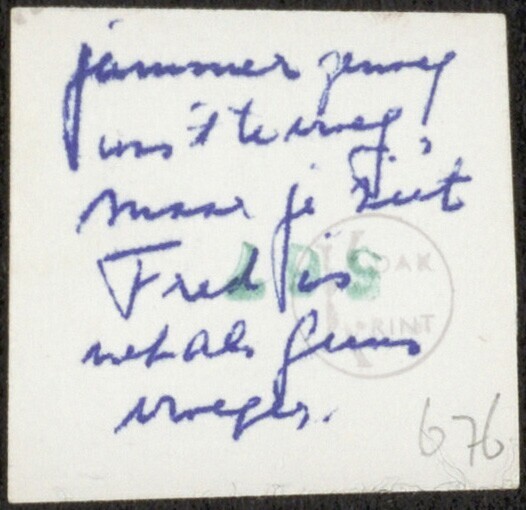 jammer genoeg
was 't te vroeg,
maar je ziet
Fred is
net als
vroeger.
KODAK
PRINT
676